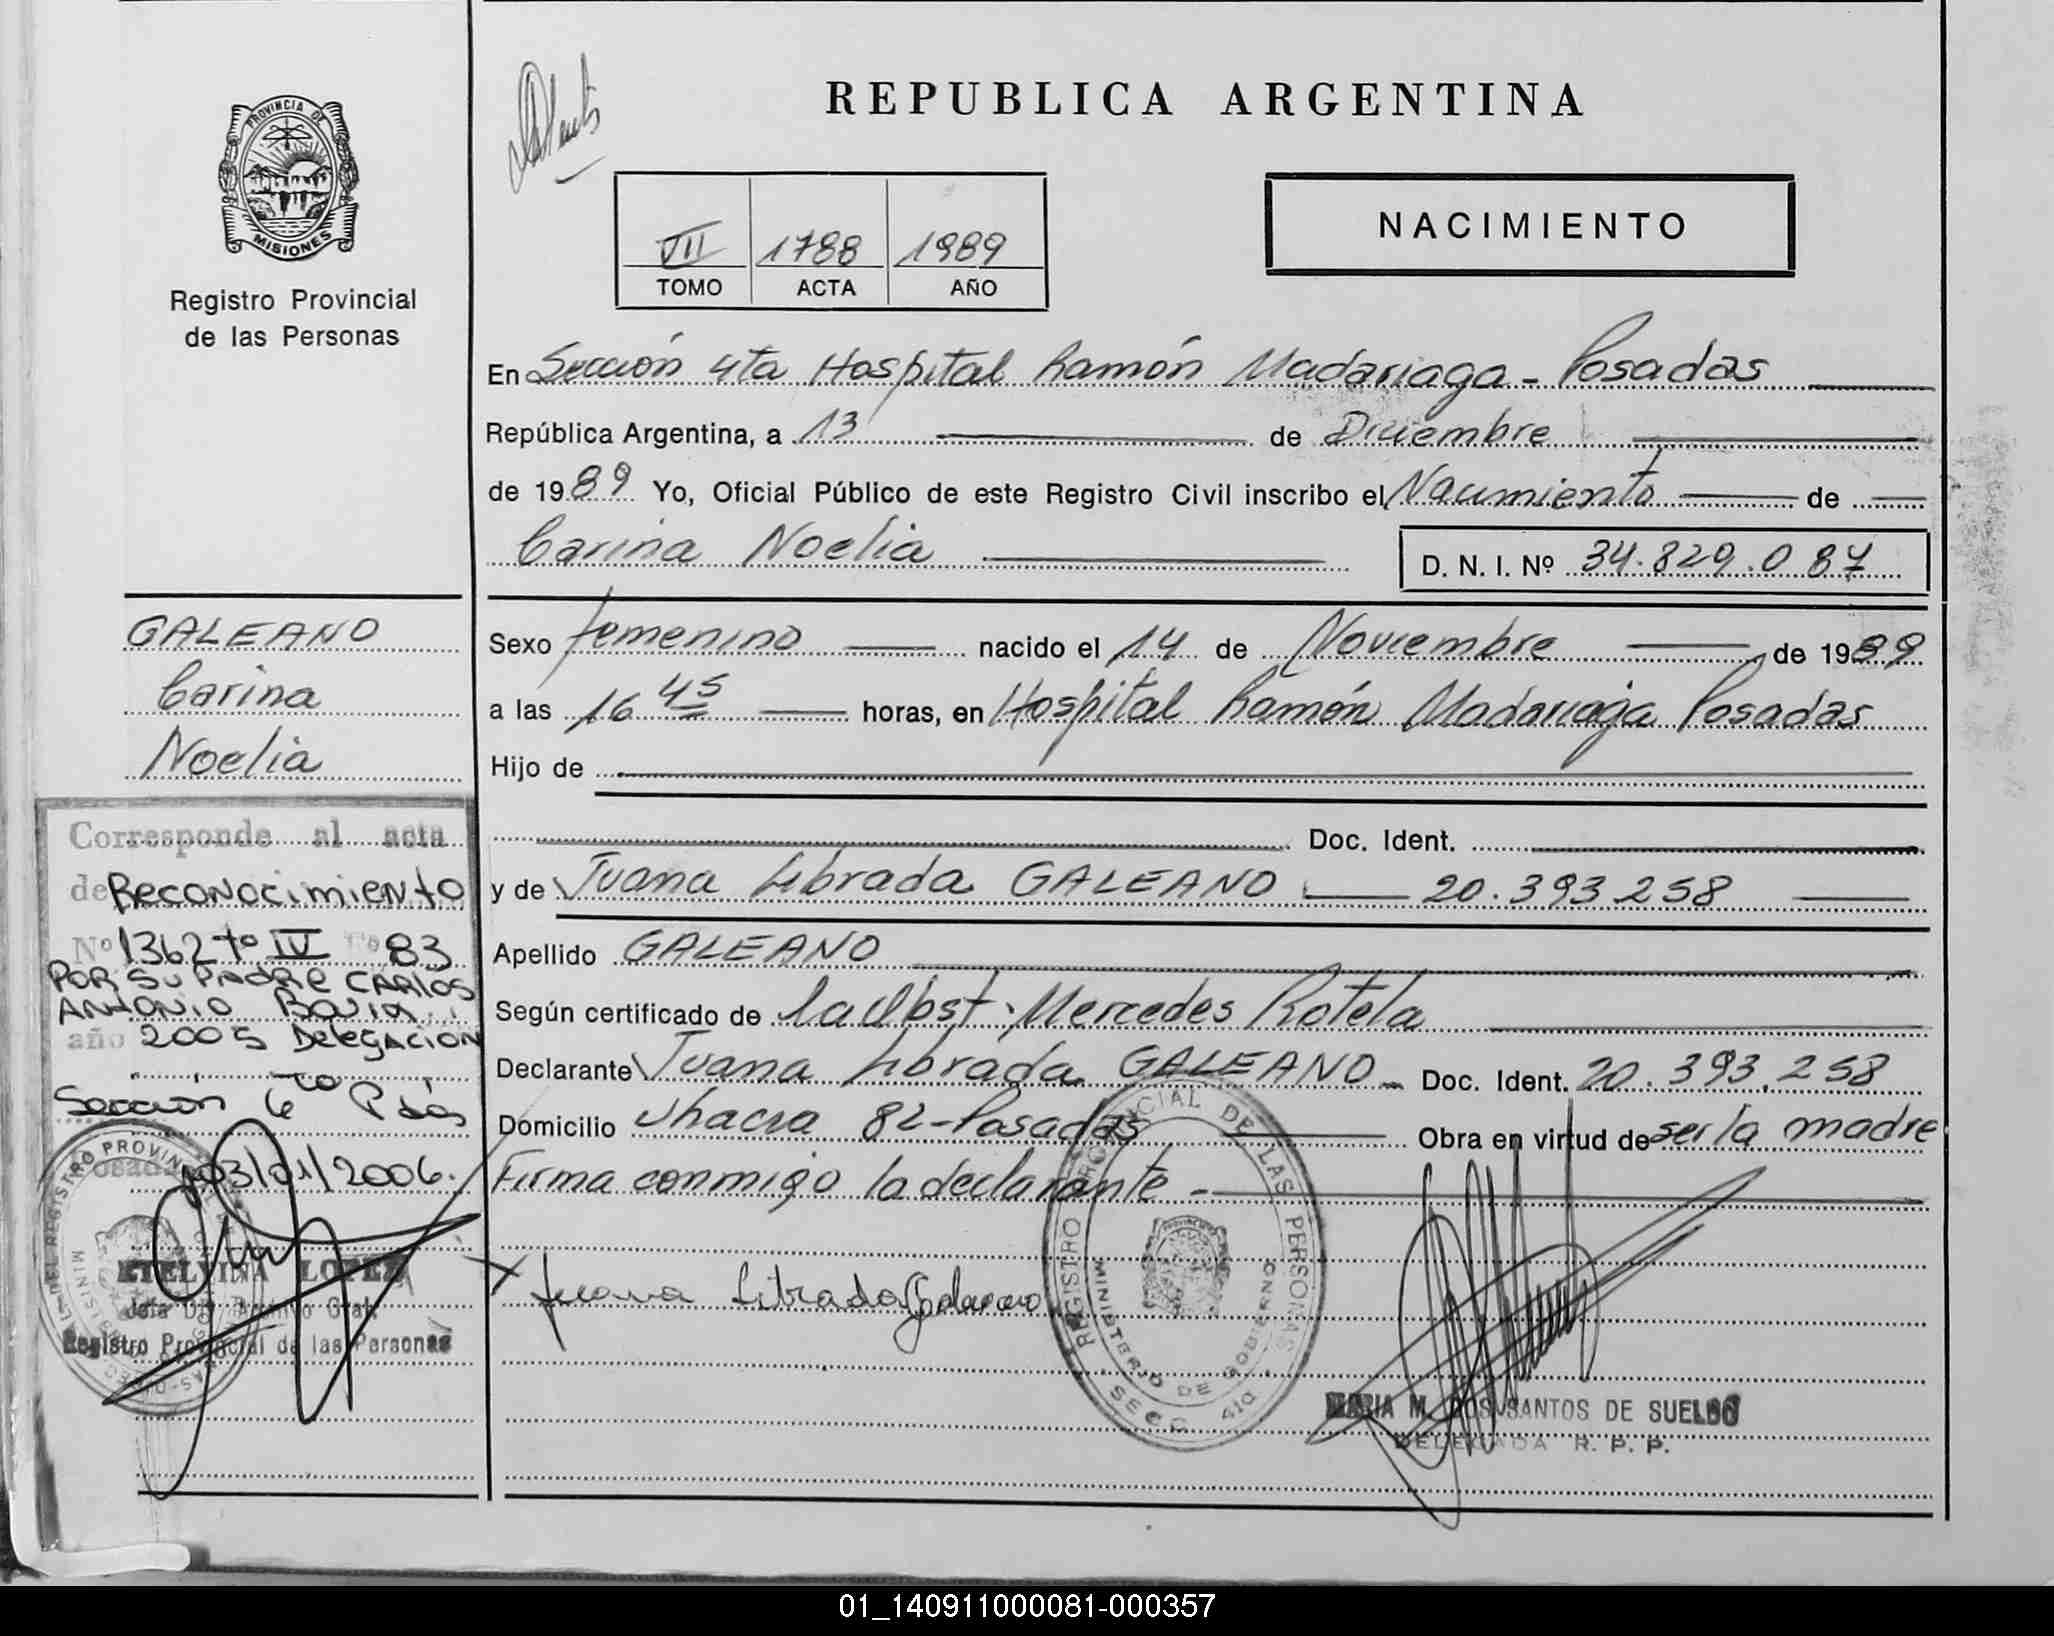 REPUBLICA ARGENTINA
PROVINCIA DE
MISIONES
Registro Provincial
de las Personas
VII 1788 1989
TOMO ACTA AÑO
NACIMIENTO
En Sección 4ta Hospital Ramón Madariaga - Posadas
República Argentina, a 13 de Diciembre
de 1989 Yo, Oficial Público de este Registro Civil inscribo el Nacimiento de
Carina Noelia
D. N. I. Nº 34.829.087
GALEANO
Carina
Noelia
Sexo femenino nacido el 14 de Noviembre de 1989
a las 16 45 horas, en Hospital Ramón Madariaga Posadas
Hijo de
Doc. Ident.
y de Juana Librada GALEANO 20.393.258
Apellido GALEANO
Según certificado de la Obst. Mercedes Rotela
Declarante Juana Librada GALEANO Doc. Ident. 20.393.258
Domicilio Chacra 82 - Posadas Obra en virtud de ser la madre
Firma conmigo la declarante -
X Juana Librada Galeano
REGISTRO PROVINCIAL DE LAS PERSONAS
MINISTERIO DE GOBIERNO
SECC. 4ta
MARIA M. DOS SANTOS DE SUELDO
DELEGADA R. P. P.
Corresponde al acta
de Reconocimiento
Nº 1362 to IV Fo 83
POR SU PADRE CARLOS
ANTONIO
año 2005 Delegación
Sección 6ta Pdas
Posadas 03/01/2006.
ETELVINA LOPEZ
Jefa Dto Archivo Gral.
Registro Provincial de las Personas
01_140911000081-000357